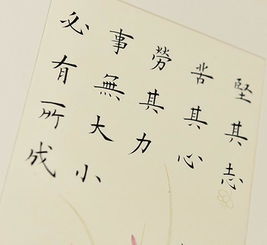 堅其志
苦其心
勞其力
事無大小
必有所成